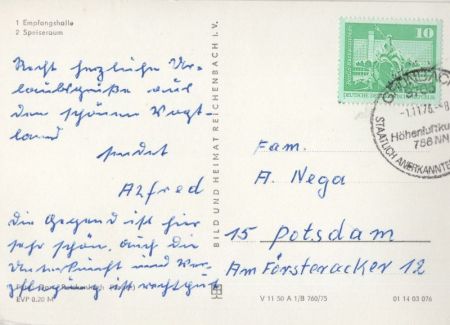 1 Empfangshalle
2 Speiseraum
Recht herzliche Ur-
laubsgrüße aus
dem schönen Vogt-
land
sendet
Alfred
Die Gegend ist hier
sehr schön, auch die
Unterkunft und Ver-
pflegung ist recht gut
EVP 0,20 M
BILD UND HEIMAT REICHENBACH I. V.
10
DEUTSCHE
-1.11.76.-8
Höhenluftku
786 NN
STAATLICH ANERKANNTE
Fam.
A. Nega
15 Potsdam
Am Försteracker 12
V 11 50 A 1/B 760/75
01 14 03 076